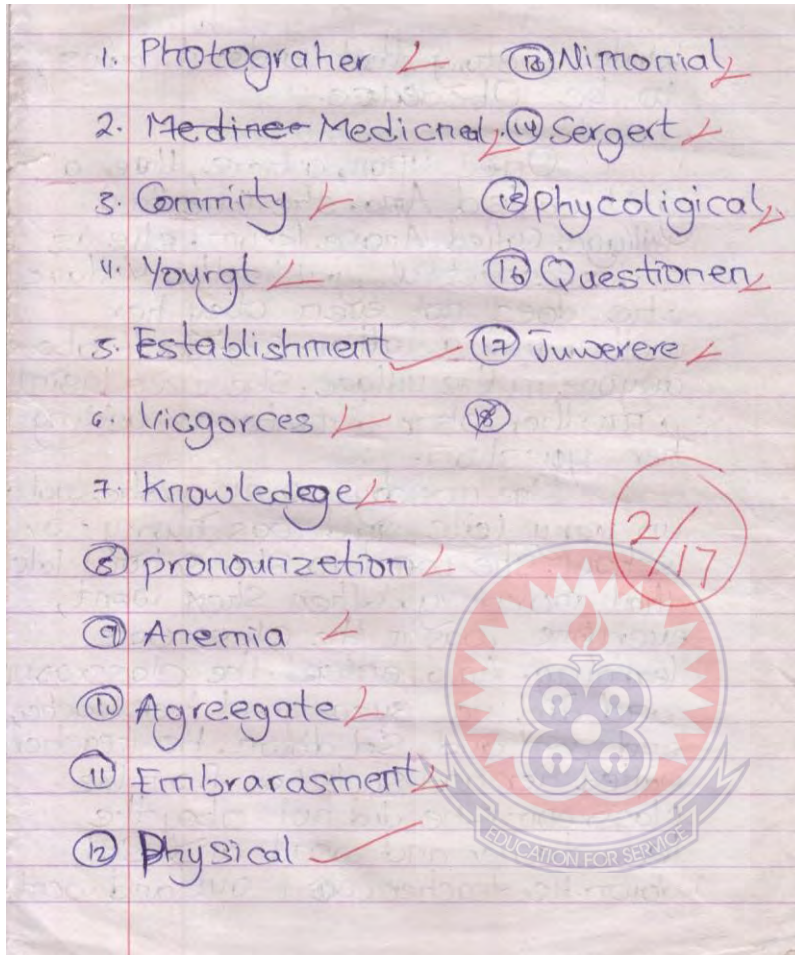 1. Photograher
2. Mediner Medicnal
3. Commirty
4. Yourgt
5. Establishment
6. Vicgorces
7. Knowledege
8 pronounzetion
9 Anemia
10 Agreegate
11 Embrarasment
12 Physical
13 Nimonial
14 Sergert
15 Phycoligical
16 Questionen
17 Juwerere
18
2/17
EDUCATION FOR SERVICE